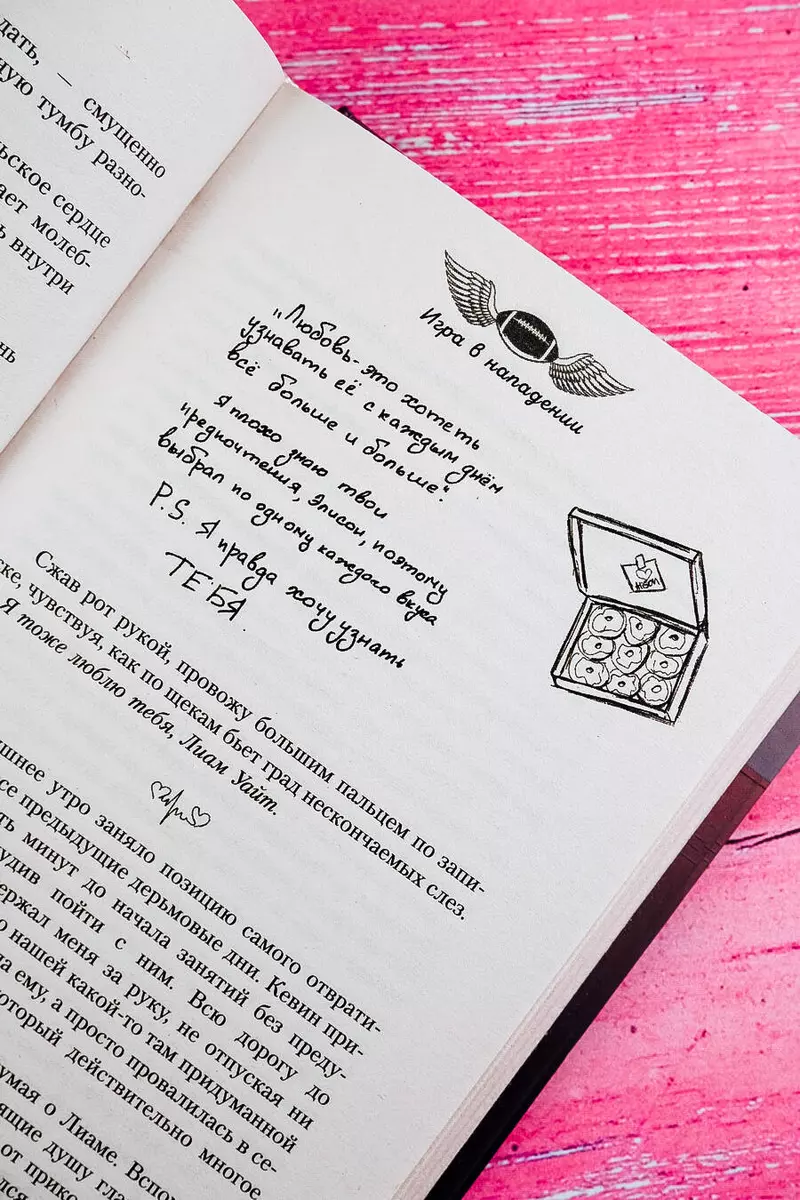 дать, — смущенно
ную тумбу разно-
ьское сердце
ает молеб-
ь внутри
нь
Игра в нападении
„Любовь-это хотеть
узнавать её с каждым днём
всё больше и больше“.
Я плохо знаю твои
предпочтения, Элисон, поэтому
выбрал по одному каждого вкуса
P.S. Я правда хочу узнать
ТЕБЯ.
Сжав рот рукой, провожу большим пальцем по запи-
ске, чувствуя, как по щекам бьет град нескончаемых слез.
Я тоже люблю тебя, Лиам Уайт.
шнее утро заняло позицию самого отврати-
се предыдущие дерьмовые дни. Кевин при-
ть минут до начала занятий без преду-
удив пойти с ним. Всю дорогу до
ержал меня за руку, не отпуская ни
о нашей какой-то там придуманной
ла ему, а просто провалилась в се-
который действительно многое
умая о Лиаме. Вспом
ящие душу гла
от прико
лся